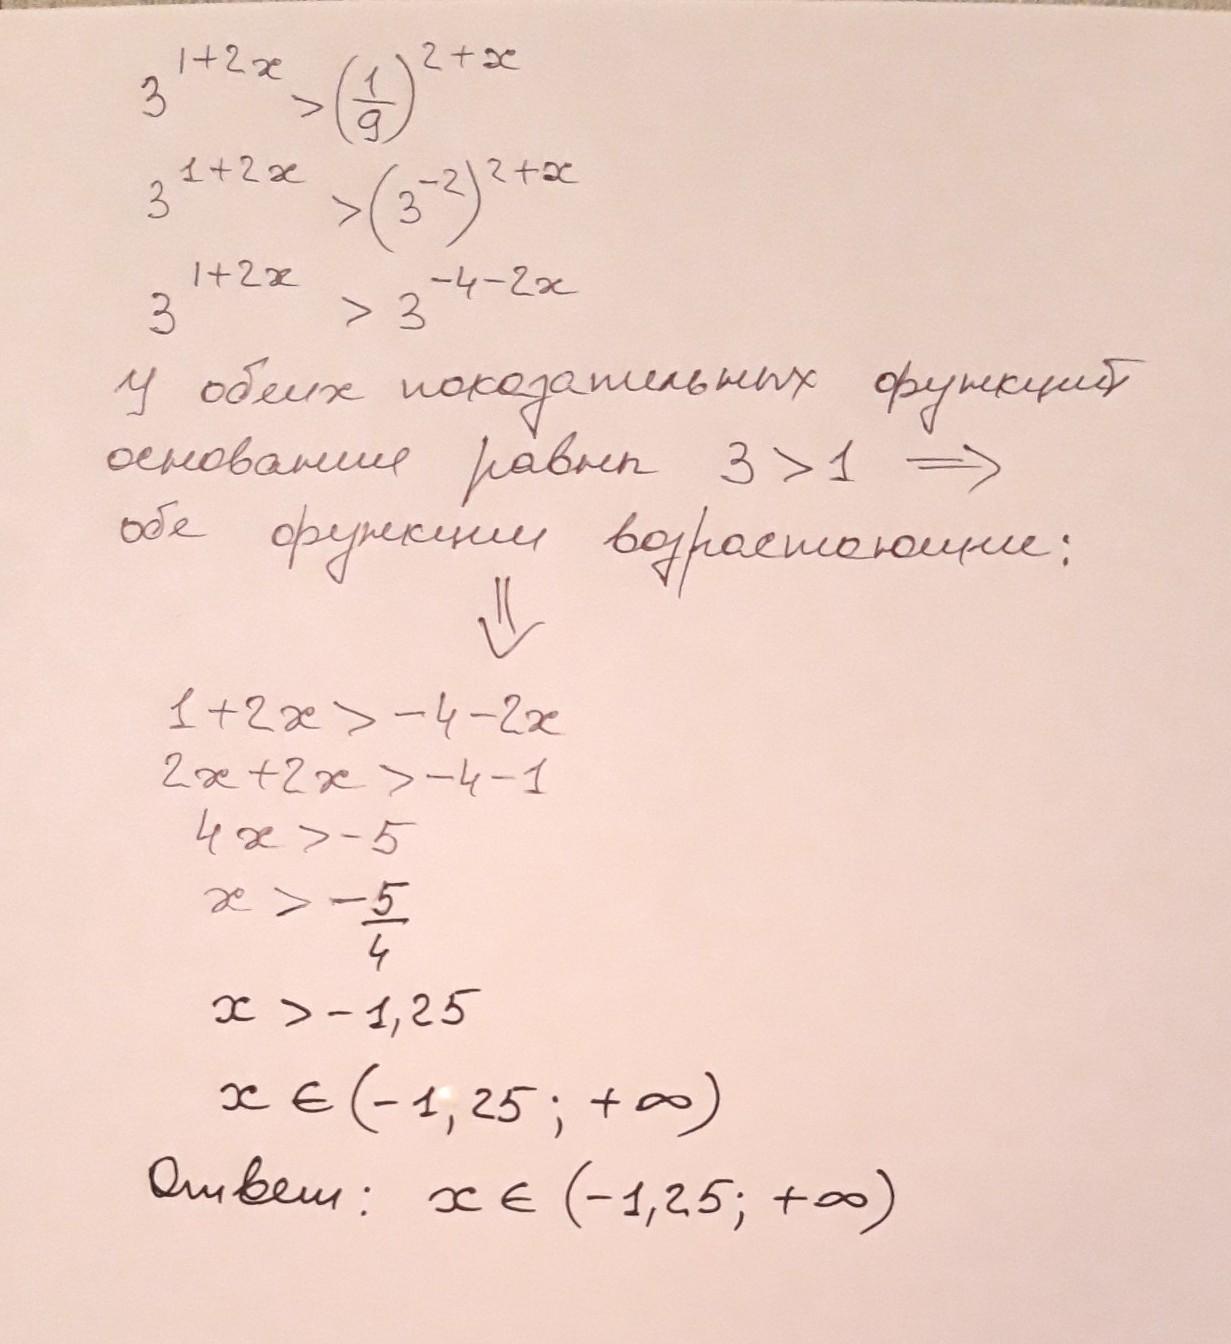 3^{1+2x} > (1/9)^{2+x}
3^{1+2x} > (3^{-2})^{2+x}
3^{1+2x} > 3^{-4-2x}
У обеих показательных функций
основание равны 3 > 1 ⟹
обе функции возрастающие:
⇓
1+2x > -4-2x
2x+2x > -4-1
4x > -5
x > -5/4
x > -1,25
x ∈ (-1,25; +∞)
Ответ: x ∈ (-1,25; +∞)